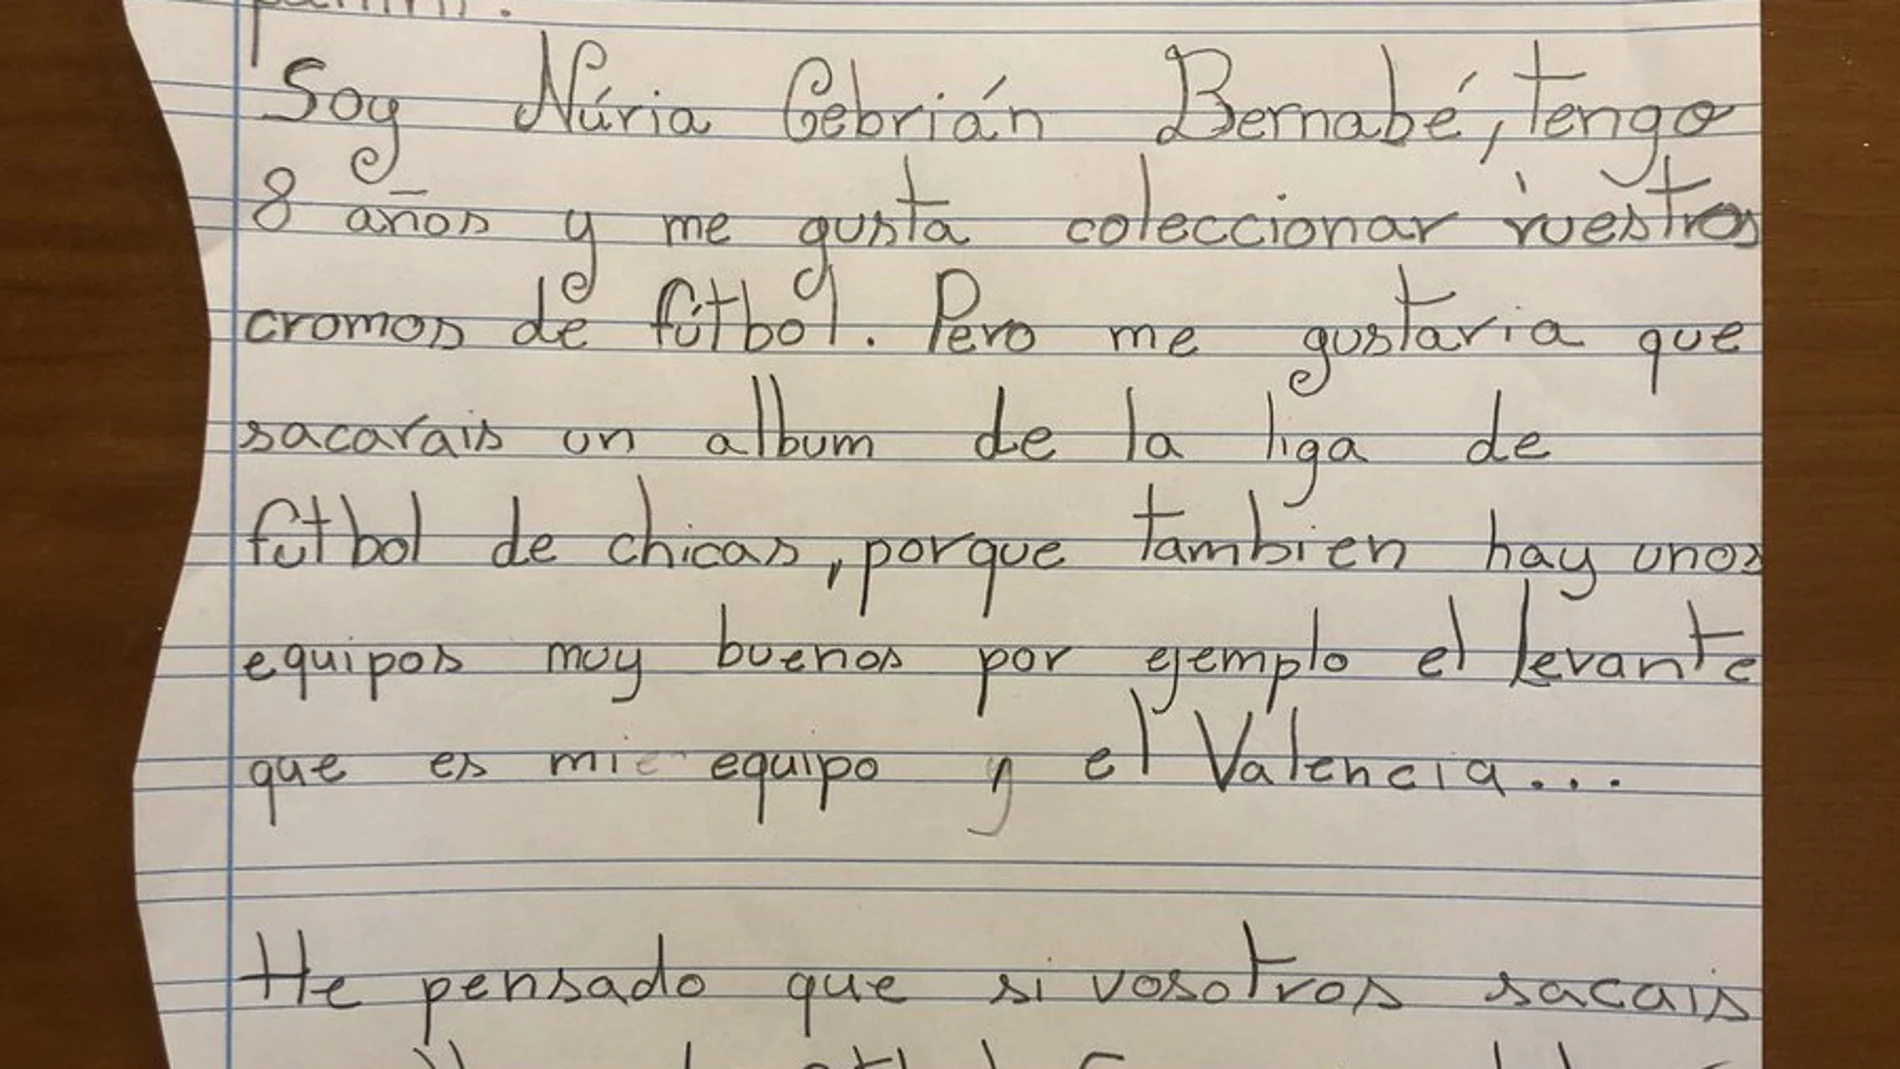 Soy Núria Cebrián Bernabé, tengo
8 años y me gusta coleccionar vuestros
cromos de fútbol. Pero me gustaria que
sacarais un album de la liga de
futbol de chicas, porque tambien hay unos
equipos muy buenos por ejemplo el levante
que es mi equipo y el Valencia...
He pensado que si vosotros sacais